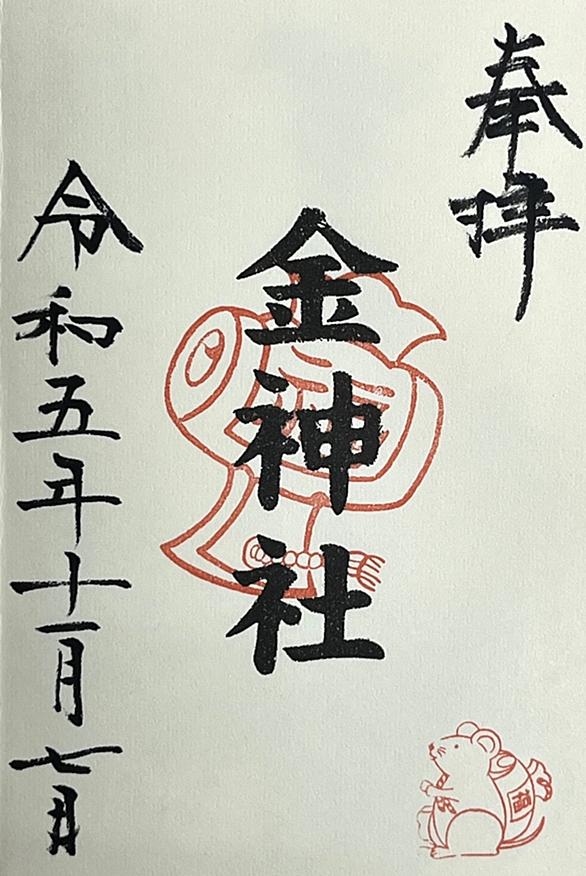 奉拝
金神社
令和五年十一月七日
福